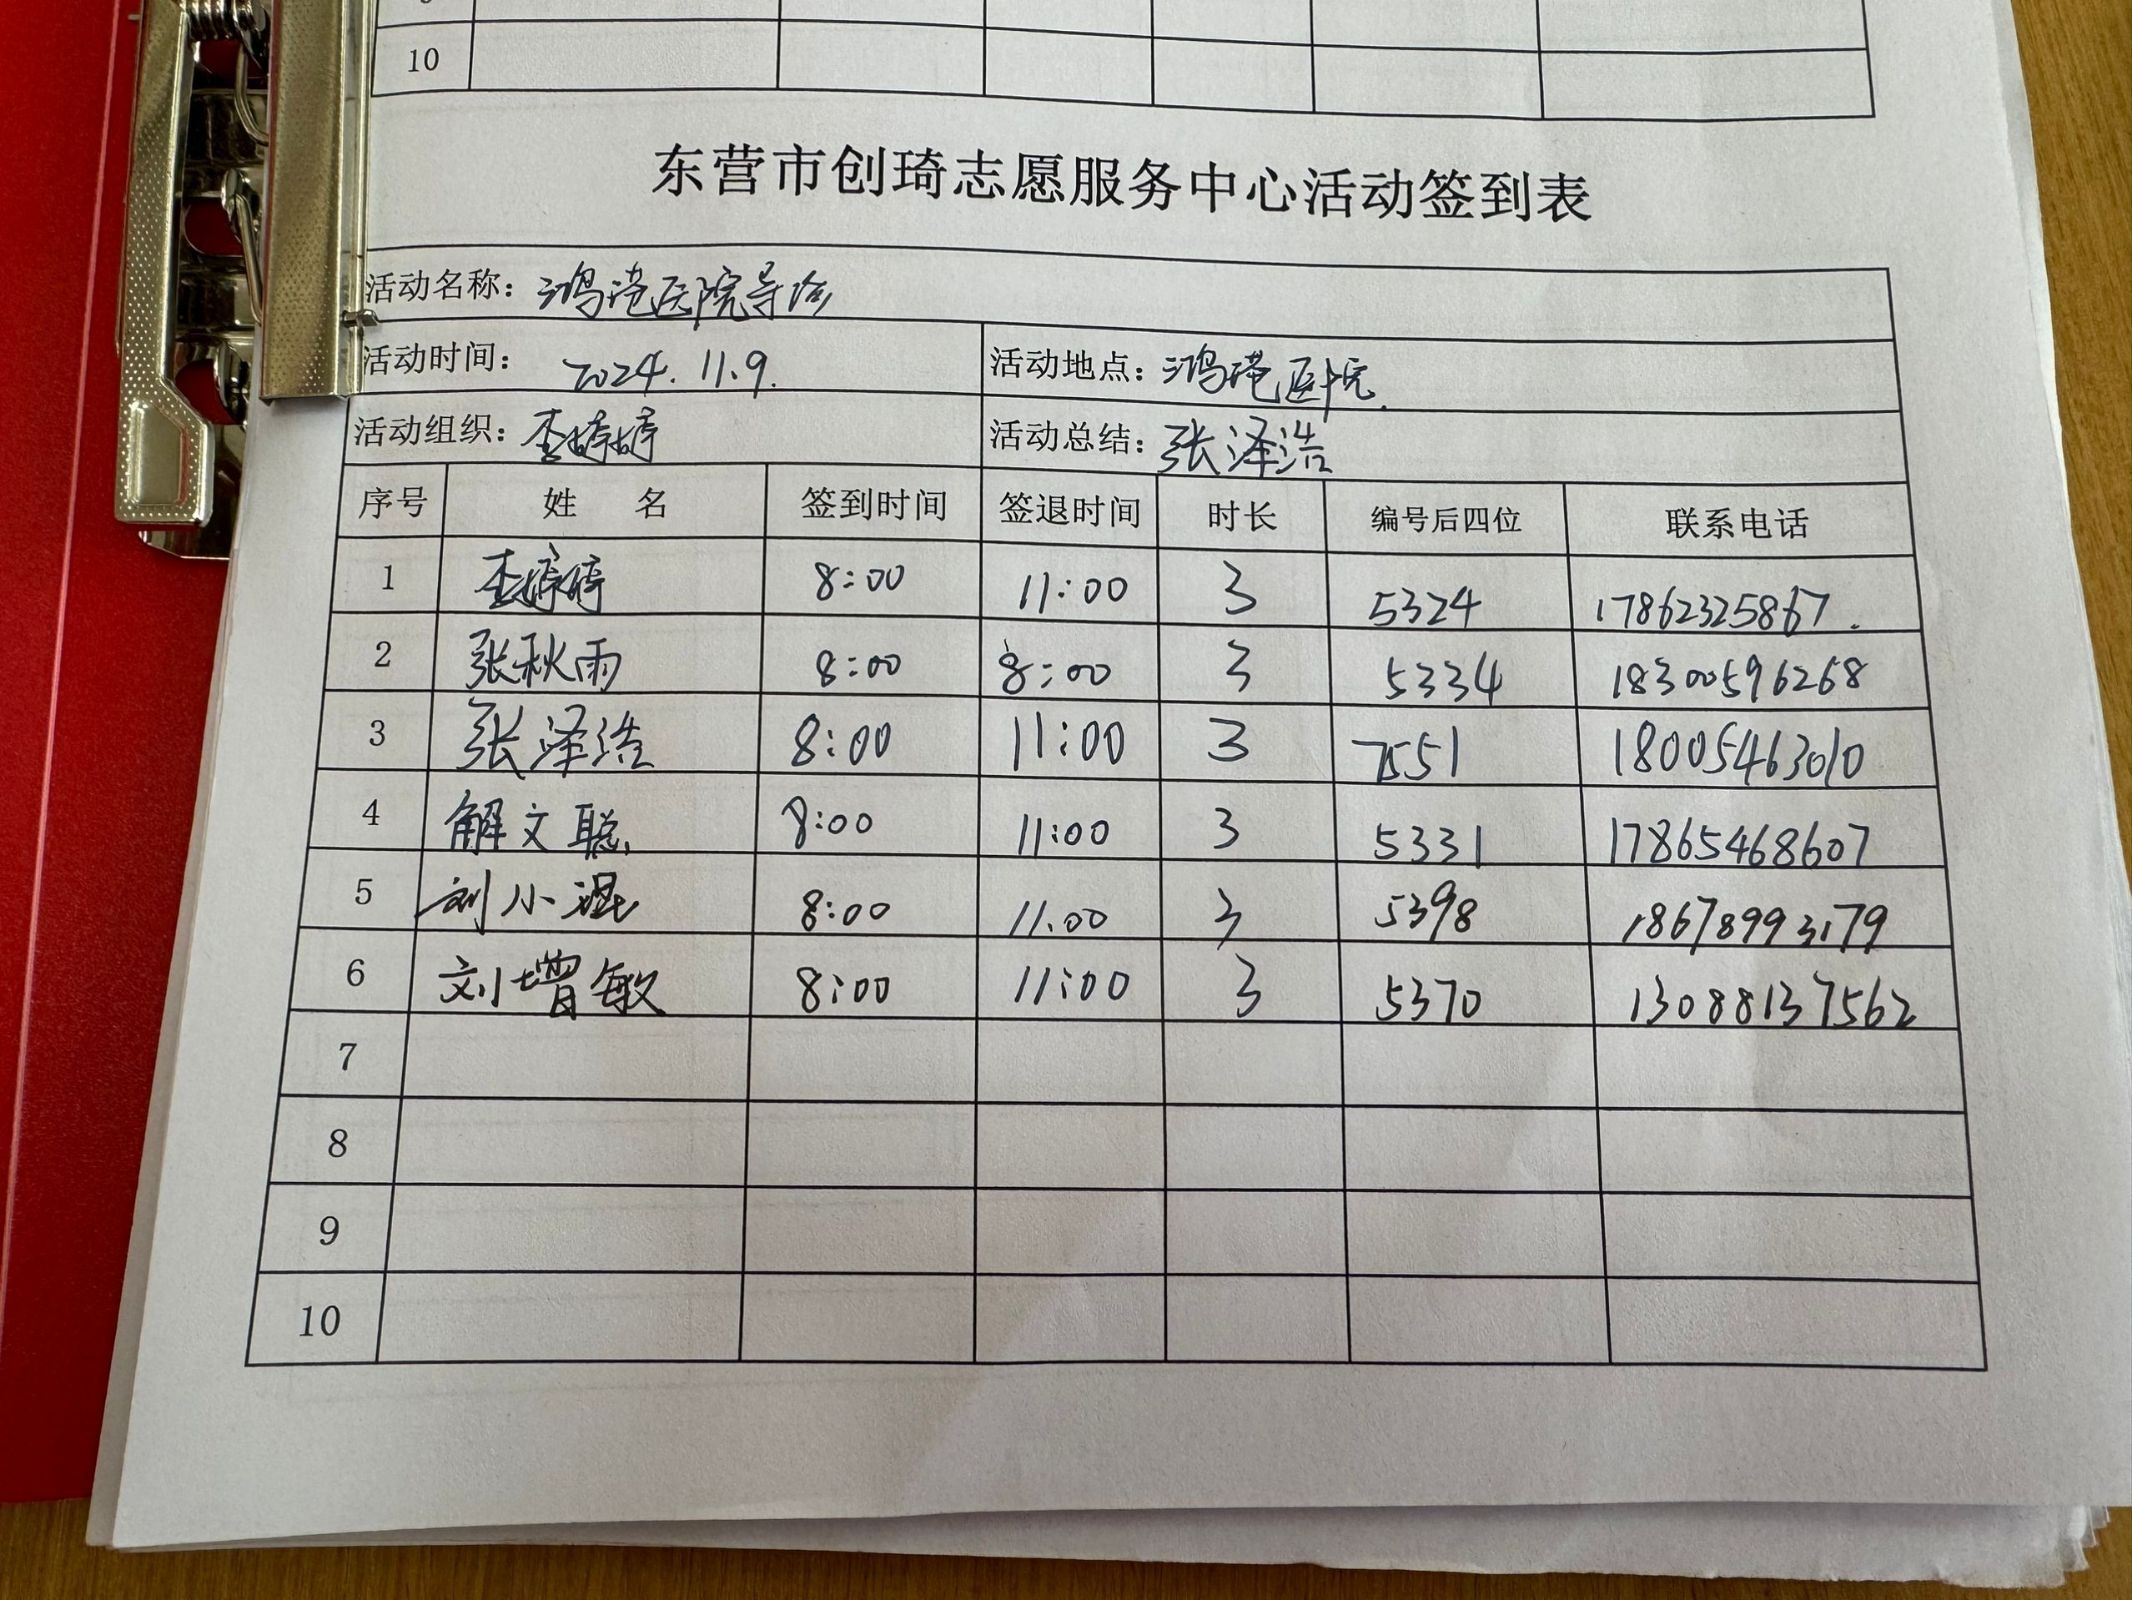 10
东营市创琦志愿服务中心活动签到表
活动名称：鸿港医院导诊
活动时间： 2024.11.9. 活动地点：鸿港医院.
活动组织：李婷婷 活动总结：张泽浩
序号 姓 名 签到时间 签退时间 时长 编号后四位 联系电话
1 李婷婷 8:00 11:00 3 5324 17862325867.
2 张秋雨 8:00 8:00 3 5334 18300596268
3 张泽浩 8:00 11:00 3 7551 18005463010
4 解文聪 8:00 11:00 3 5331 17865468607
5 刘小混 8:00 11.00 3 5398 18678993179
6 刘增敏 8:00 11:00 3 5370 13088137562
7
8
9
10